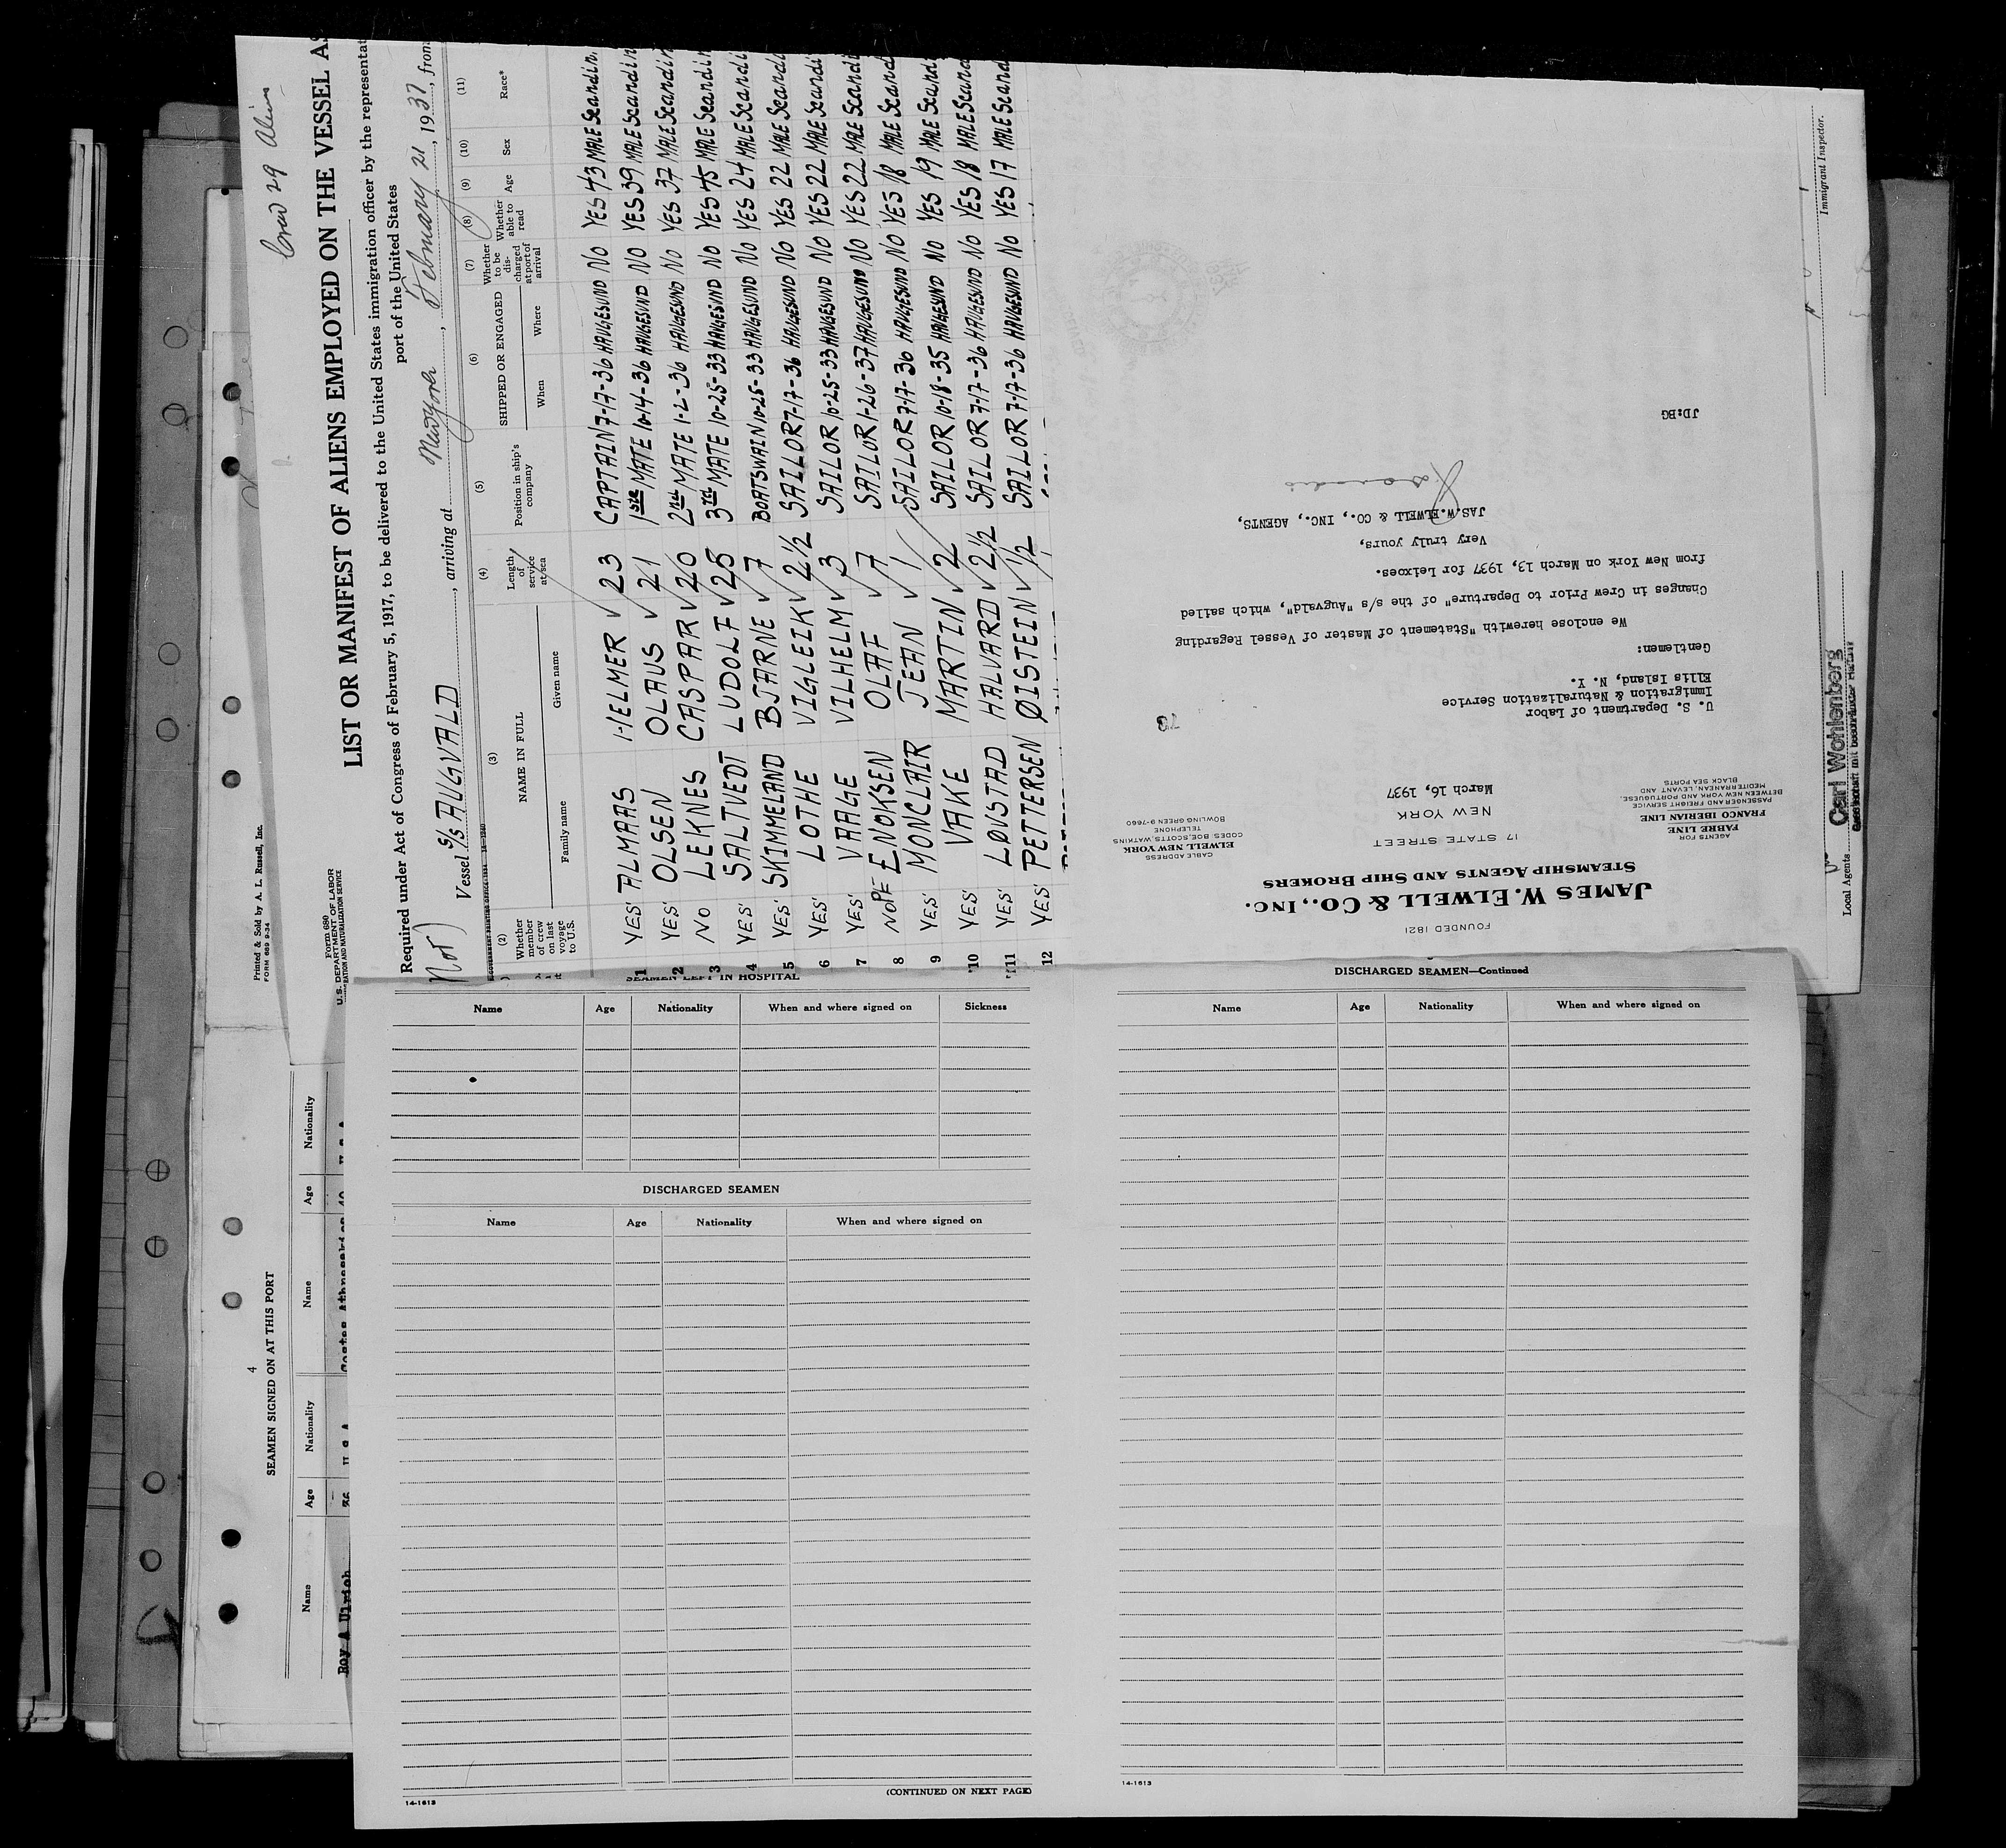 Crew 29 Aliens
LIST OR MANIFEST OF ALIENS EMPLOYED ON THE VESSEL AS
Required under Act of Congress of February 5, 1917, to be delivered to the United States immigration officer by the representat
port of the United States
Vessel S/S AUGVALD, arriving at Newyork, February 21, 1937, from
Printed & Sold by A. L. Russell, Inc.
FORM 689 9-34
Form 680
U. S. DEPARTMENT OF LABOR
(Nor)
(2) (3) (4) (5) (6) (7) (8) (9) (10) (11)
Whether member of crew on last voyage to U.S. NAME IN FULL Length of service at sea Position in ship's company SHIPPED OR ENGAGED Whether to be discharged at port of arrival Whether able to read Age Sex Race*
Family name Given name When Where
1 YES ALMAAS HELMER 23 CAPTAIN 7-17-36 HAUGESUND NO YES 43 MALE Scandin.
2 YES OLSEN OLAUS 21 1ste MATE 10-14-36 HAUGESUND NO YES 39 MALE Scandin
3 NO LEKNES CASPAR 20 2nd MATE 1-2-36 HAUGESUND NO YES 37 MALE Scandin
4 YES SALTVEDT LUDOLF 28 3rd MATE 10-25-33 HAUGESUND NO YES 45 MALE Scandin
5 YES SKIMMELAND BJARNE 7 BOATSWAIN 10-25-33 HAUGESUND NO YES 24 MALE Scandi
6 YES LOTHE VIGLEIK 2½ SAILOR 7-17-36 HAUGESUND NO YES 22 MALE Scandi
7 YES VAAGE VILHELM 3 SAILOR 10-25-33 HAUGESUND NO YES 22 MALE Scandi
8 NOPE ENOKSEN OLAF 7 SAILOR 1-26-37 HAUGESUND NO YES 22 MALE Scandi
9 YES MONCLAIR JEAN 1 SAILOR 7-17-36 HAUGESUND NO YES 18 MALE Scand
10 YES VAKE MARTIN 2 SAILOR 10-18-35 HAUGESUND NO YES 19 MALE Scandi
11 YES LØVSTAD HALVARD 2½ SAILOR 7-17-36 HAUGESUND NO YES 18 MALE Scand
12 YES PETTERSEN ØISTEIN ½ SAILOR 7-17-36 HAUGESUND NO YES 17 MALE Scand
FOUNDED 1821
JAMES W. ELWELL & CO., INC.
STEAMSHIP AGENTS AND SHIP BROKERS
17 STATE STREET
NEW YORK
AGENTS FOR
FABRE LINE
FRANCO IBERIAN LINE
PASSENGER AND FREIGHT SERVICE
BETWEEN NEW YORK AND PORTUGUESE,
MEDITERRANEAN, LEVANT AND
BLACK SEA PORTS
CABLE ADDRESS
ELWELL NEW YORK
CODES: BOE, SCOTTS, WATKINS
TELEPHONE
BOWLING GREEN 9-7660
March 16, 1937
U. S. Department of Labor
Immigration & Naturalization Service
Ellis Island, N. Y.
Gentlemen:
We enclose herewith "Statement of Master of Vessel Regarding
Changes in Crew Prior to Departure" of the s/s "Augvald", which sailed
from New York on March 13, 1937 for Leixoes.
Very truly yours,
JAS. W. ELWELL & CO., INC., AGENTS,
JD:BG
Immigrant Inspector.
Local Agents
Carl Wohlenberg
SEAMEN LEFT IN HOSPITAL
Name Age Nationality When and where signed on Sickness
DISCHARGED SEAMEN
Name Age Nationality When and where signed on
(CONTINUED ON NEXT PAGE)
14-1613
DISCHARGED SEAMEN—Continued
Name Age Nationality When and where signed on
14-1613
4
SEAMEN SIGNED ON AT THIS PORT
Name Age Nationality Name Age Nationality
Roy A Ulrich 36 U S A